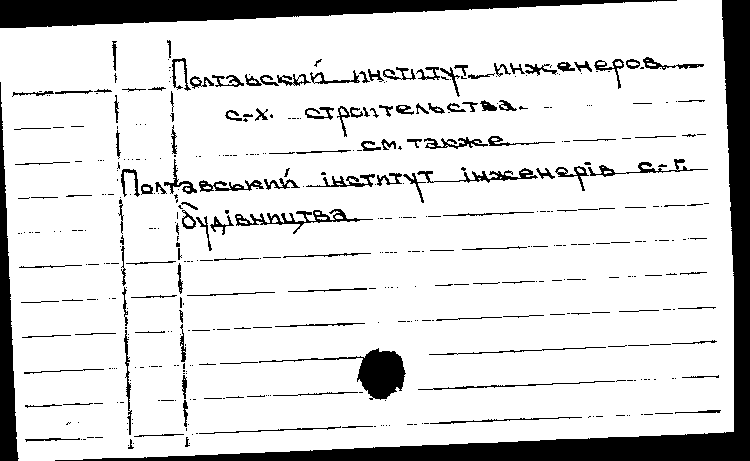 Полтавский институт инженеров
с.-х. строительства.
см. также
Полтавський інститут інженерів с.-г.
будівництва.